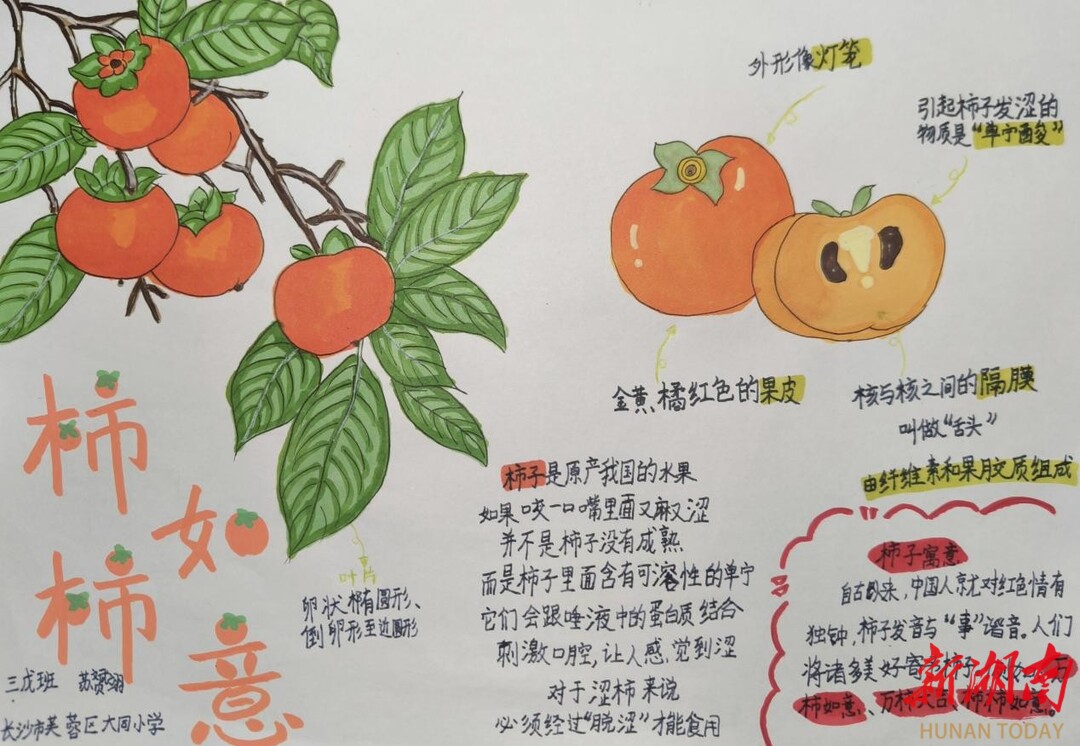 外形像灯笼
引起柿子发涩的
物质是“单宁酸”
金黄、橘红色的果皮
核与核之间的隔膜
叫做“舌头”
由纤维素和果胶质组成
柿柿如意
叶片
卵状椭圆形、
倒卵形至近圆形
柿子是原产我国的水果
如果咬一口嘴里面又麻又涩
并不是柿子没有成熟
而是柿子里面含有可溶性的单宁
它们会跟唾液中的蛋白质结合
刺激口腔,让人感觉到涩
对于涩柿来说
必须经过“脱涩”才能食用
柿子寓意
自古以来,中国人就对红色情有
独钟,柿子发音与“事”谐音。人们
将诸多美好寄
柿如意、万柿大吉、柿柿如意。
三戊班
长沙市芙蓉区大同小学
新湖南
HUNAN TODAY